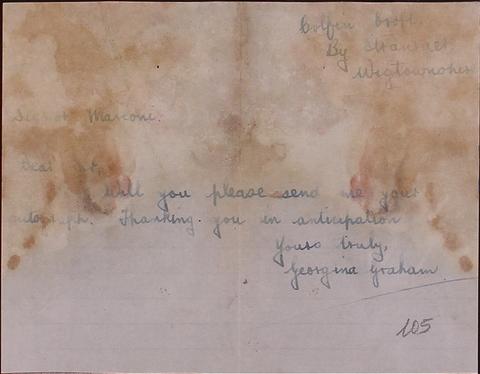 Colfin Croft.
By Stranraer
Wigtownshire
Signor Marconi.
Dear Sir,
Will you please send me your
autograph. Thanking you in anticipation
Yours truly,
Georgina Graham
105